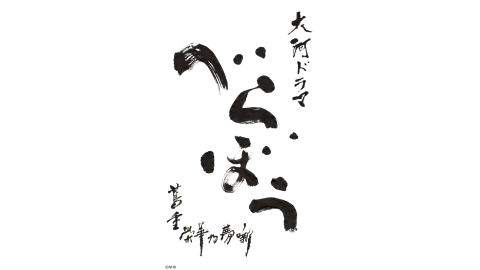 大河ドラマ
べらぼう
蔦重
栄華乃夢噺
©NHK